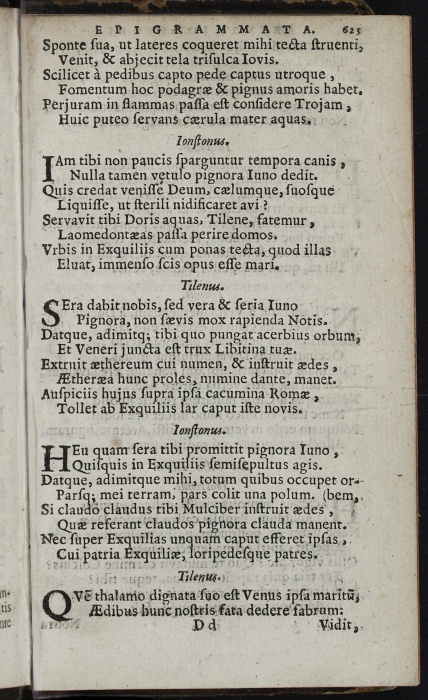 EPIGRAMMATA. 625
Sponte sua, ut lateres coqueret mihi tecta struenti,
Venit, & abjecit tela trisulca Iovis.
Scilicet à pedibus capto pede captus utroque,
Fomentum hoc podagræ & pignus amoris habet.
Perjuram in flammas passa est considere Trojam,
Huic puteo servans cærula mater aquas.
Ionstonus.
IAm tibi non paucis sparguntur tempora canis,
Nulla tamen vetulo pignora Iuno dedit.
Quis credat venisse Deum, cælumque, suosque
Liquisse, ut sterili nidificaret avi?
Servavit tibi Doris aquas, Tilene, fatemur,
Laomedontæas passa perire domos.
Vrbis in Exquiliis cum ponas tecta, quod illas
Eluat, immenso scis opus esse mari.
Tilenus.
SEra dabit nobis, sed vera & seria Iuno
Pignora, non sævis mox rapienda Notis.
Datque, adimitq; tibi quo pungat acerbius orbum,
Et Veneri juncta est trux Libitina tuæ.
Extruit æthereum cui numen, & instruit ædes,
Ætheræa hunc proles, numine dante, manet.
Auspiciis hujus supra ipsa cacumina Romæ,
Tollet ab Exquiliis lar caput iste novis.
Ionstonus.
HEu quam sera tibi promittit pignora Iuno,
Quisquis in Exquiliis semisepultus agis.
Datque, adimitque mihi, totum quibus occupet or-
Parsq; mei terram, pars colit una polum. (bem,
Si claudo claudus tibi Mulciber instruit ædes,
Quæ referant claudos pignora clauda manent.
Nec super Exquilias unquam caput efferet ipsas,
Cui patria Exquiliæ, loripedesque patres.
Tilenus.
QVē thalamo dignata suo est Venus ipsa maritū,
Ædibus hunc nostris fata dedere fabrum:
Dd Vidit,